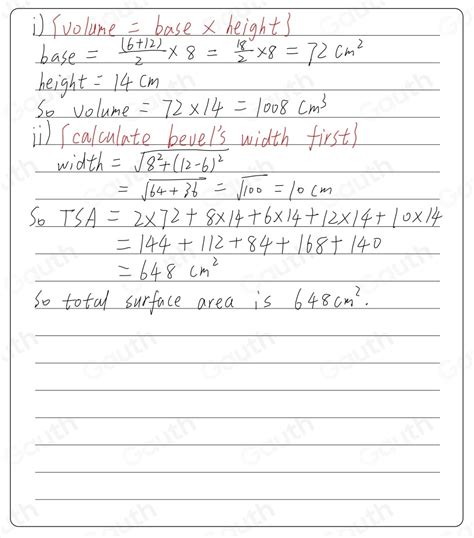 i) {volume = base × height}
base = (6+12)/2 × 8 = 18/2 × 8 = 72 cm²
height = 14 cm
So volume = 72 × 14 = 1008 cm³
ii) {calculate bevel's width first}
width = √8²+(12-6)²
= √64+36 = √100 = 10 cm
So TSA = 2×72 + 8×14 + 6×14 + 12×14 + 10×14
= 144 + 112 + 84 + 168 + 140
= 648 cm²
So total surface area is 648 cm².